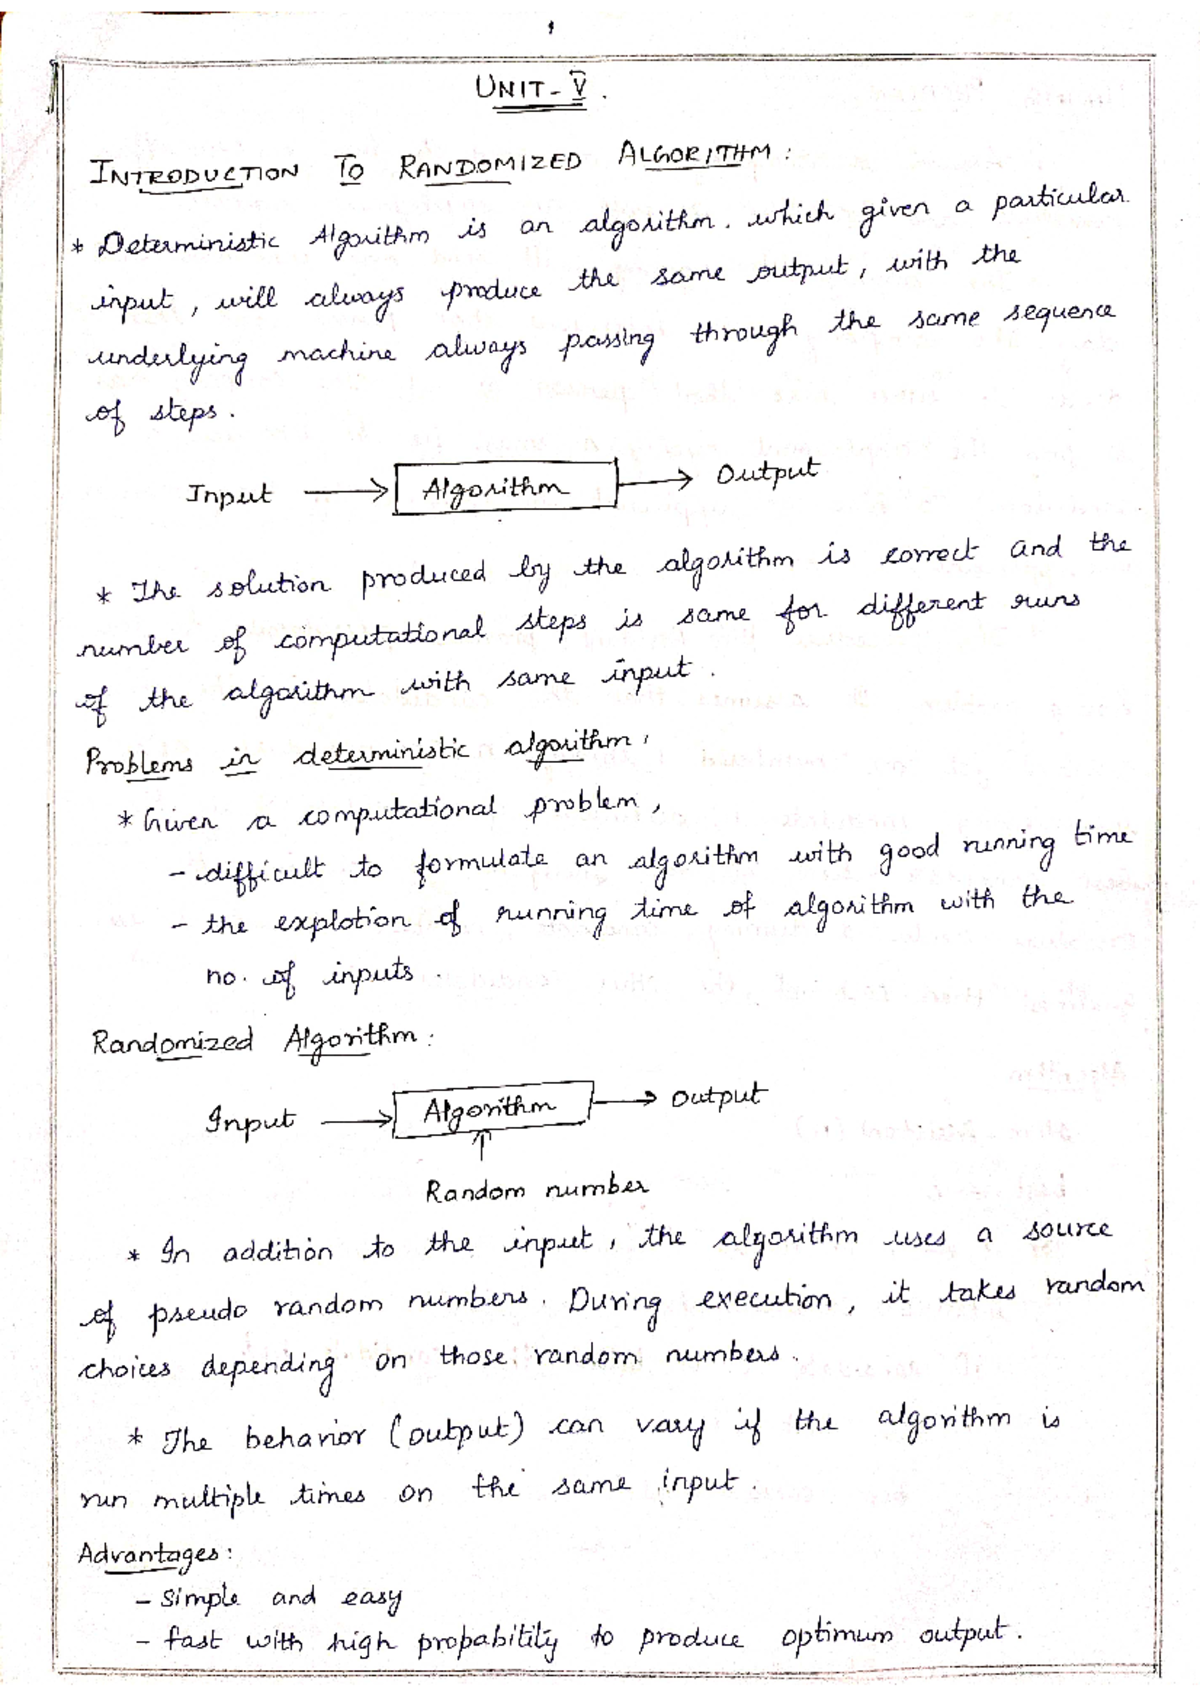 UNIT - V.
INTRODUCTION TO RANDOMIZED ALGORITHM:
* Deterministic Algorithm is an algorithm. which given a particular
input, will always produce the same output, with the
underlying machine always passing through the same sequence
of steps.
Input → Algorithm → Output
* The solution produced by the algorithm is correct and the
number of computational steps is same for different runs
of the algorithm with same input.
Problems in deterministic algorithm,
* Given a computational problem,
- difficult to formulate an algorithm with good running time
- the explotion of running time of algorithm with the
no. of inputs.
Randomized Algorithm:
Input → Algorithm → Output
↑
Random number
* In addition to the input, the algorithm uses a source
of pseudo random numbers. During execution, it takes random
choices depending on those random numbers.
* The behavior (output) can vary if the algorithm is
run multiple times on the same input.
Advantages:
- Simple and easy
- fast with high probability to produce optimum output.